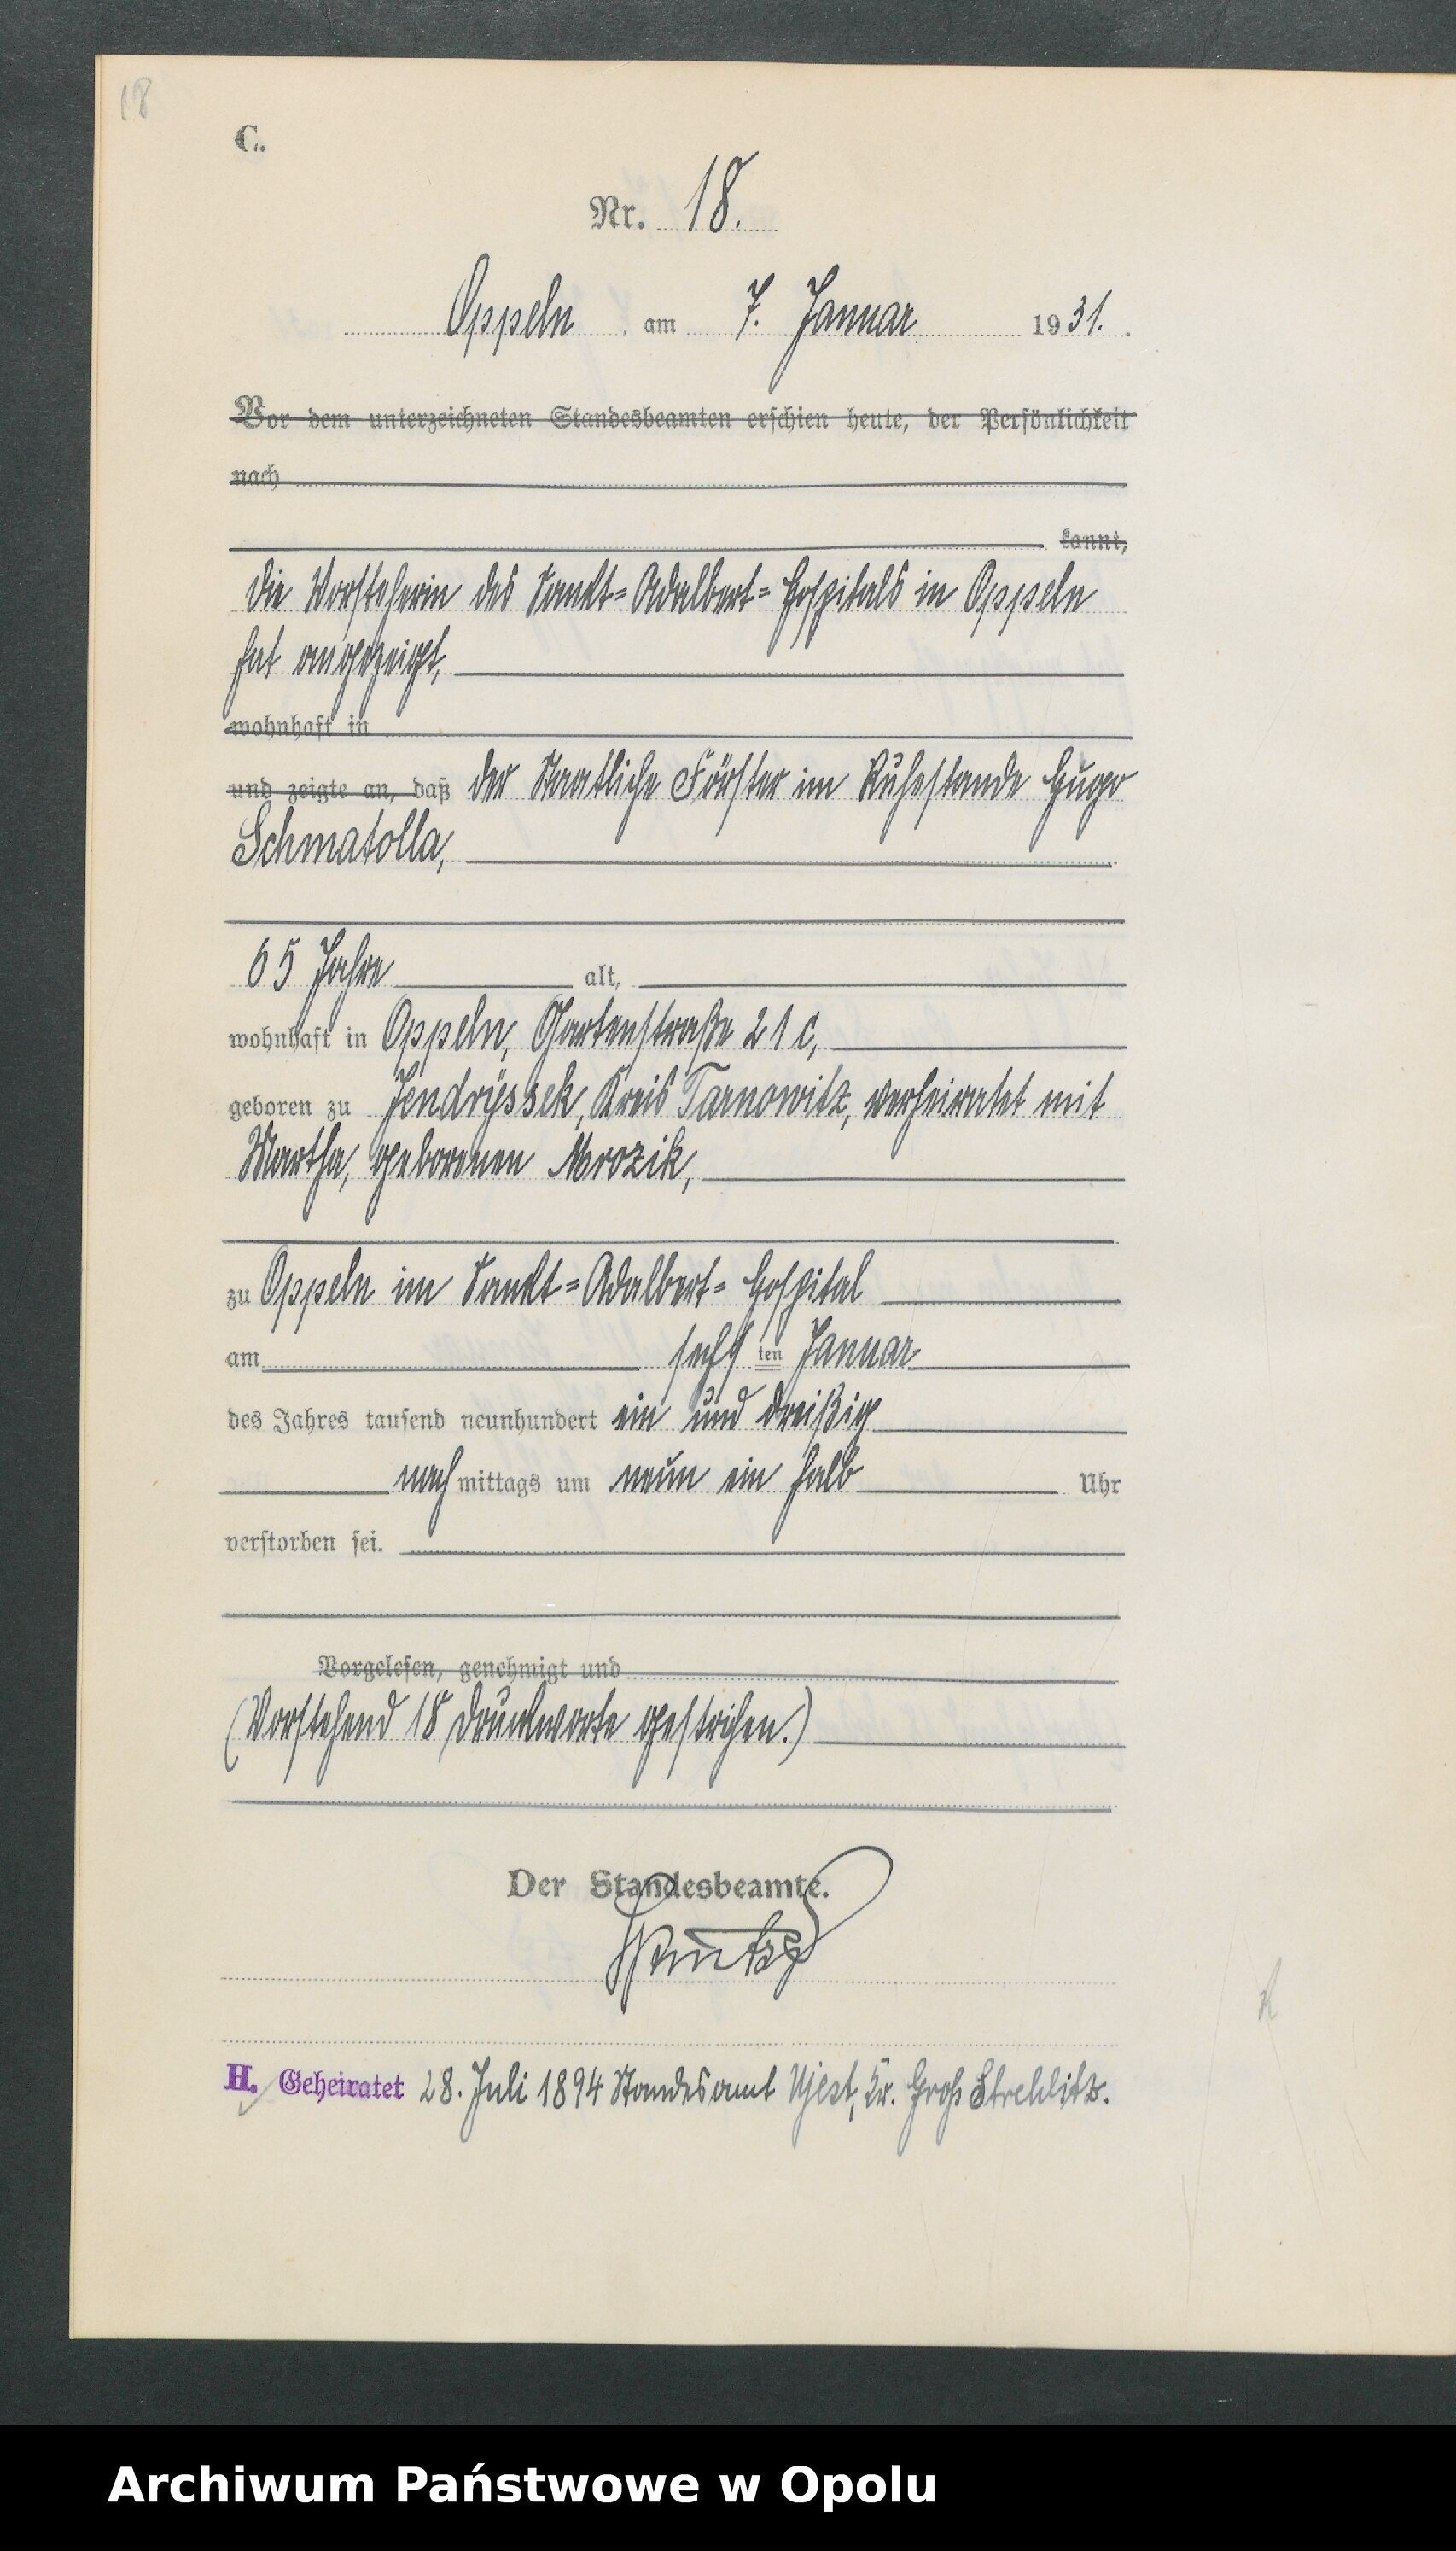 18
C.
Nr. 18.
Oppeln am 7. Januar 1931.
Vor dem unterzeichneten Standesbeamten erschien heute, der Persönlichkeit
nach
kannt,
die Vorsteherin des Sankt=Adalbert=Hospitals in Oppeln
hat angezeigt,
wohnhaft in
und zeigte an, daß der Staatliche Förster im Ruhestande Hugo
Schmatolla,
65 Jahre alt,
wohnhaft in Oppeln, Gartenstraße 21 c,
geboren zu Jendryssek, Kreis Tarnowitz, verheiratet mit
Martha, geborenen Mrozik,
zu Oppeln im Sankt=Adalbert=Hospital
am sechsten Januar
des Jahres tausend neunhundert ein und dreißig
nachmittags um neun ein halb Uhr
verstorben sei.
Vorgelesen, genehmigt und
(Vorstehend 18 Druckworte gestrichen.)
Der Standesbeamte.
H. Geheiratet 28. Juli 1894 Standesamt Ujest, Kr. Groß Strehlitz.
Archiwum Państwowe w Opolu